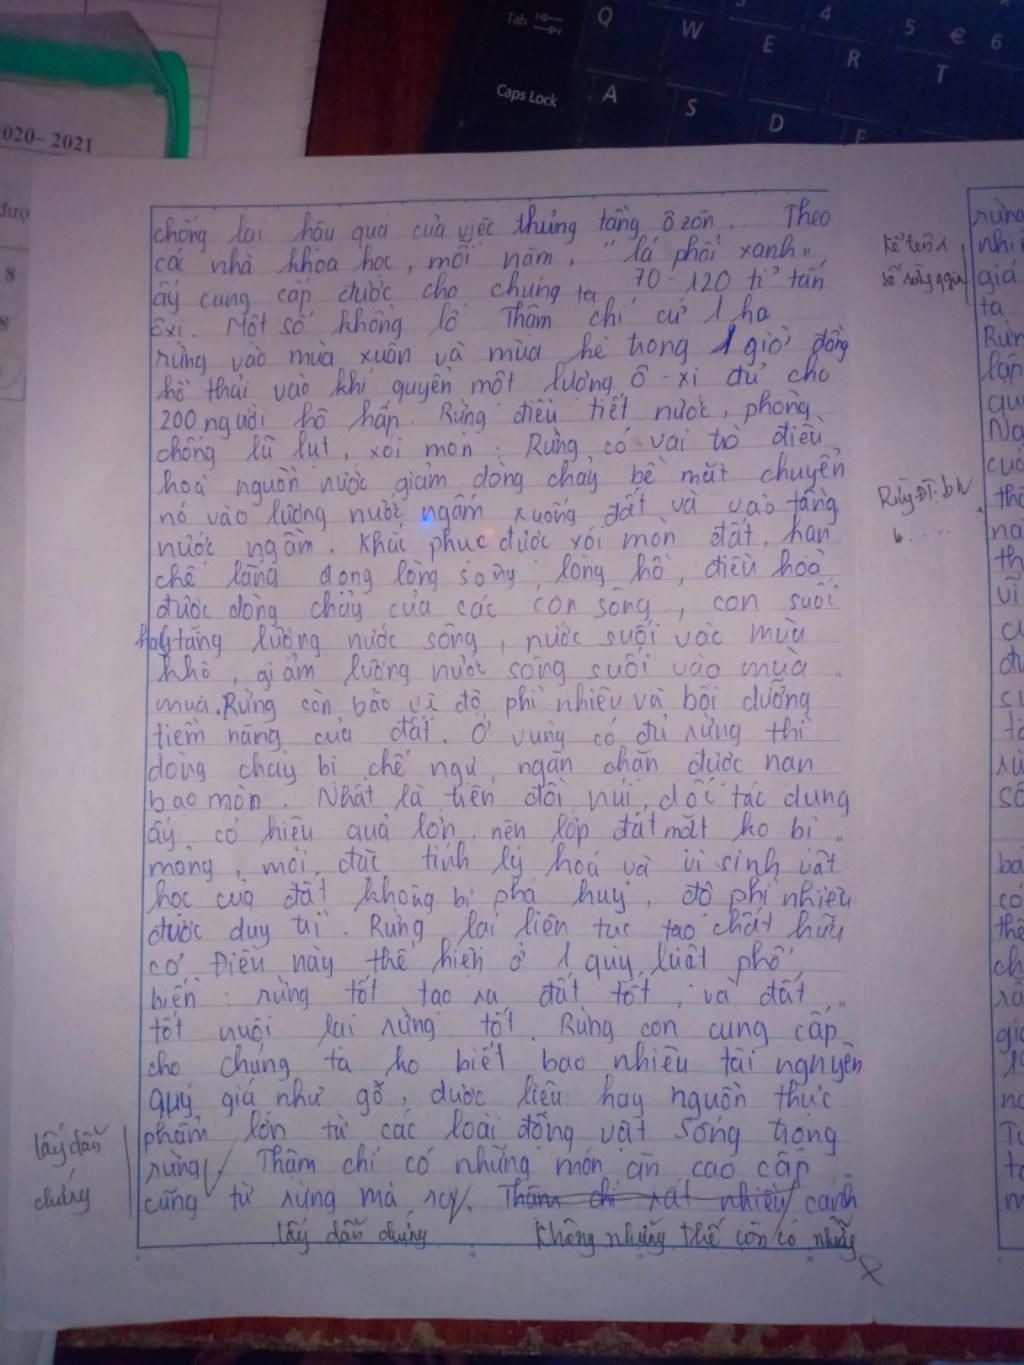 Tab
Q
W
E
R
T
4
5 €
6
Caps Lock
A
S
D
F
2020– 2021
8
chống lại hậu quả của việc thủng tầng ô zôn... Theo
các nhà khoa học, mỗi năm, "lá phổi xanh"
ấy cung cấp được cho chúng ta 70 - 120 tỉ tấn
ôxi. Một số khổng lồ. Thậm chí cứ 1 ha
rừng vào mùa xuân và mùa hè trong 1 giờ đồng
hồ thải vào khí quyển một lượng ô-xi đủ cho
200 người hô hấp. Rừng điều tiết nước, phòng
chống lũ lụt, xói mòn: Rừng có vai trò điều
hoà nguồn nước giảm dòng chảy bề mặt chuyển
nó vào lượng nước ngấm xuống đất và vào tầng
nước ngầm. Khắc phục được xói mòn đất, hạn
chế lắng đọng lòng sông, lòng hồ, điều hoà
được dòng chảy của các con sông, con suối
hay tăng lượng nước sông, nước suối vào mùa
khô, giảm lượng nước sông suối vào mùa
mưa. Rừng còn bảo vệ độ phì nhiêu và bồi dưỡng
tiềm năng của đất. Ở vùng có đủ rừng thì
dòng chảy bị chế ngự, ngăn chặn được nạn
bào mòn. Nhất là trên đồi núi, dốc tác dụng
ấy có hiệu quả lớn, nên lớp đất mặt ko bị
mỏng, mọi đặc tính lý hoá và vi sinh vật
học của đất không bị phá huỷ, độ phì nhiêu
được duy trì. Rừng lại liên tục tạo chất hữu
cơ. Điều này thể hiện ở 1 quy luật phổ
biến: rừng tốt tạo ra đất tốt, và đất
tốt nuôi lại rừng tốt. Rừng còn cung cấp
cho chúng ta ko biết bao nhiêu tài nguyên
quý giá như gỗ, dược liệu hay nguồn thực
phẩm lớn từ các loài động vật sống trong
rừng. Thậm chí có những món ăn cao cấp
cũng từ rừng mà ra. Thậm chí rất nhiều cảnh
lấy dẫn chứng Không những thế còn có những
lấy dẫn
chứng
kể tên 1
số rừng
Rừng
b....
rừng
giá
ta
Rừn